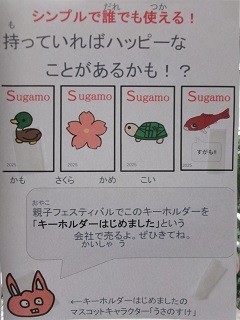 シンプルで誰でも使える！
だれ つか
持っていればハッピーな
も
ことがあるかも！？
Sugamo Sugamo Sugamo Sugamo
すがも!!
かも さくら かめ こい
おやこ
親子フェスティバルでこのキーホルダーを
「キーホルダーはじめました」という
会社で売るよ。ぜひきてね。
かいしゃ う
←キーホルダーはじめましたの
マスコットキャラクター「うさのすけ」